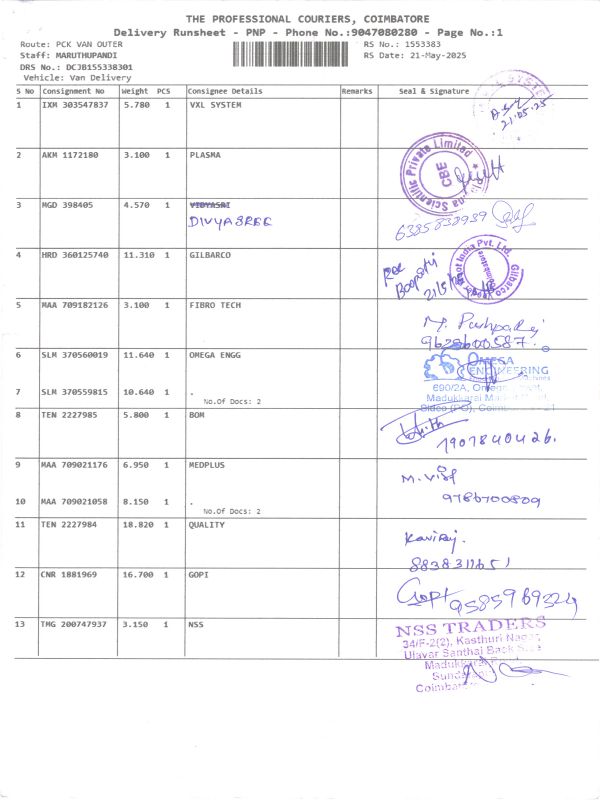 THE PROFESSIONAL COURIERS, COIMBATORE
Delivery Runsheet - PNP - Phone No.:9047080280 - Page No.:1
Route: PCK VAN OUTER RS No.: 1553383
Staff: MARUTHUPANDI RS Date: 21-May-2025
DRS No.: DCJB155338301
Vehicle: Van Delivery
S No Consignment No Weight PCS Consignee Details Remarks Seal & Signature
1 IXM 303547837 5.780 1 VXL SYSTEM
21.05.25
2 AKM 1172180 3.100 1 PLASMA
Scientific Private Limited
CBE
3 MGD 398405 4.570 1 VIDYASRI
DIVYASREE
6385838939
4 HRD 360125740 11.310 1 GILBARCO
Gilbarco India Pvt. Ltd.
Coimbatore
21/5/25
5 MAA 709182126 3.100 1 FIBRO TECH
M. Pushparaj
9629600587.
6 SLM 370560019 11.640 1 OMEGA ENGG
OMEGA
ENGINEERING
690/2A, Omega
Madukkarai Market
Sidco (PO), Coim 21
7 SLM 370559815 10.640 1 .
No.Of Docs: 2
8 TEN 2227985 5.800 1 BOM
7907840426.
9 MAA 709021176 6.950 1 MEDPLUS
M.
9786700809
10 MAA 709021058 8.150 1 .
No.Of Docs: 2
11 TEN 2227984 18.820 1 QUALITY
Kaviraj.
8838311651
12 CNR 1881969 16.700 1 GOPI
Gopi
9585969324
13 TMG 200747937 3.150 1 NSS
NSS TRADERS
34/F-2(2), Kasthuri Nagar,
Ulavar Santhai Back Side
Madukkarai
Coimbatore